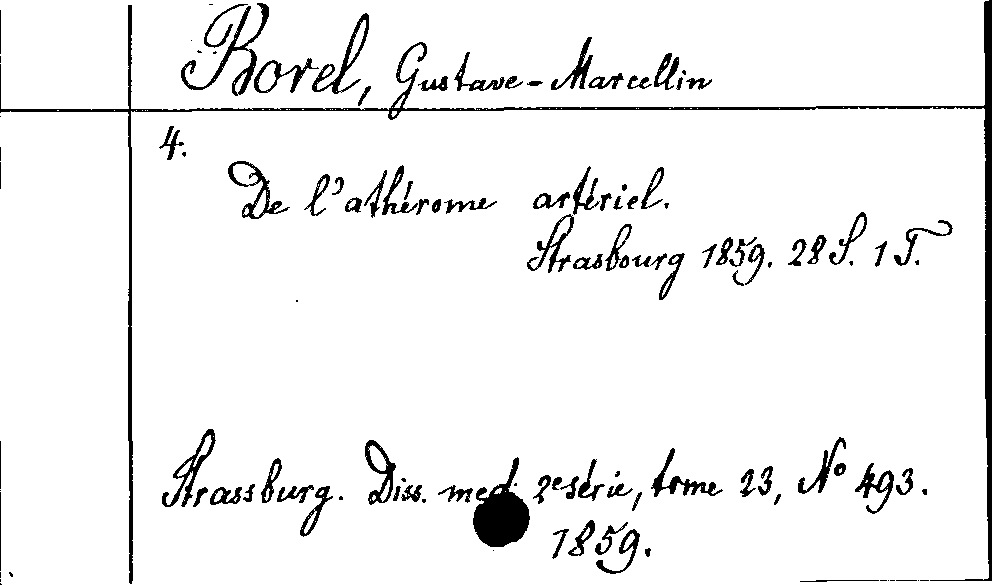 Borel, Gustave-Marcellin
4.
De l'athérome artériel.
Strasbourg 1859. 28 S. 1 T.
Strassburg. Diss. med. 2e série, tome 23, No 493.
1859.